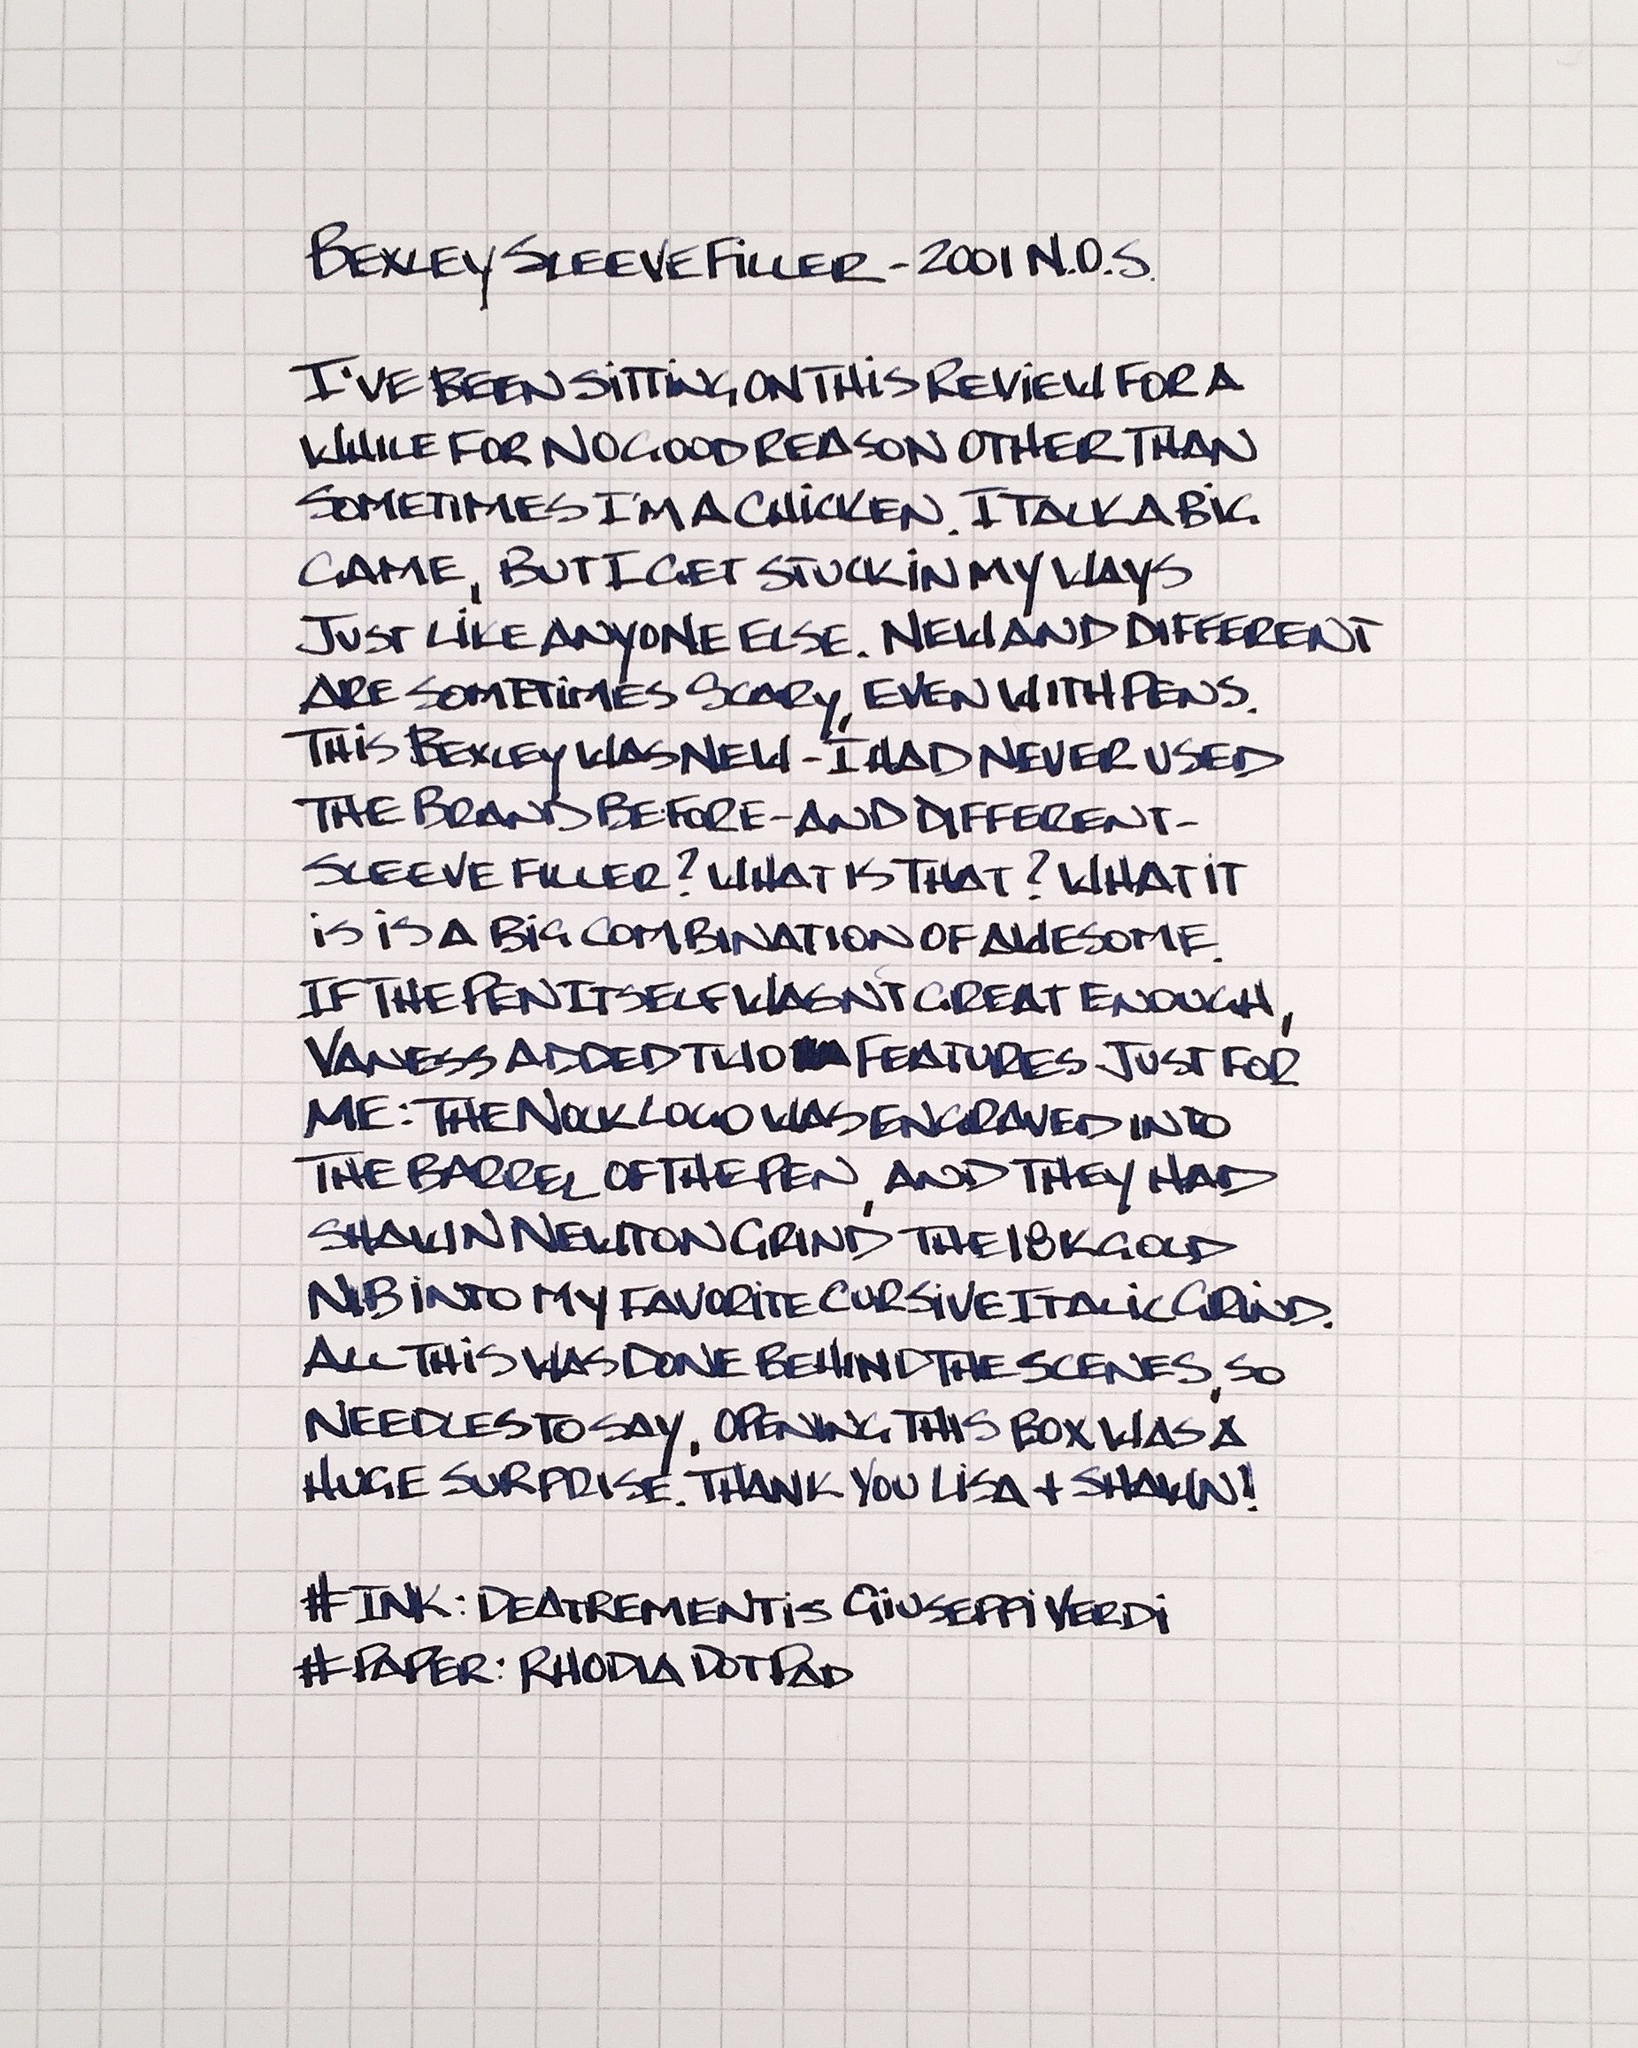 BEXLEY SLEEVE FILLER - 2001 N.O.S.
I'VE BEEN SITTING ON THIS REVIEW FOR A
WHILE FOR NO GOOD REASON OTHER THAN
SOMETIMES I'M A CHICKEN. I TALK A BIG
GAME, BUT I GET STUCK IN MY WAYS
JUST LIKE ANYONE ELSE. NEW AND DIFFERENT
ARE SOMETIMES SCARY, EVEN WITH PENS.
THIS BEXLEY WAS NEW - I HAD NEVER USED
THE BRAND BEFORE - AND DIFFERENT -
SLEEVE FILLER? WHAT IS THAT? WHAT IT
IS IS A BIG COMBINATION OF AWESOME.
IF THE PEN ITSELF WASN'T GREAT ENOUGH,
VANESS ADDED TWO FEATURES JUST FOR
ME: THE NOCK LOGO WAS ENGRAVED INTO
THE BARREL OF THE PEN, AND THEY HAD
SHAWN NEWTON GRIND THE 18K GOLD
NIB INTO MY FAVORITE CURSIVE ITALIC GRIND.
ALL THIS WAS DONE BEHIND THE SCENES, SO
NEEDLES TO SAY, OPENING THIS BOX WAS A
HUGE SURPRISE. THANK YOU LISA + SHAWN!
#INK: DEATREMENTIS GIUSEPPI VERDI
#PAPER: RHODIA DOTPAD